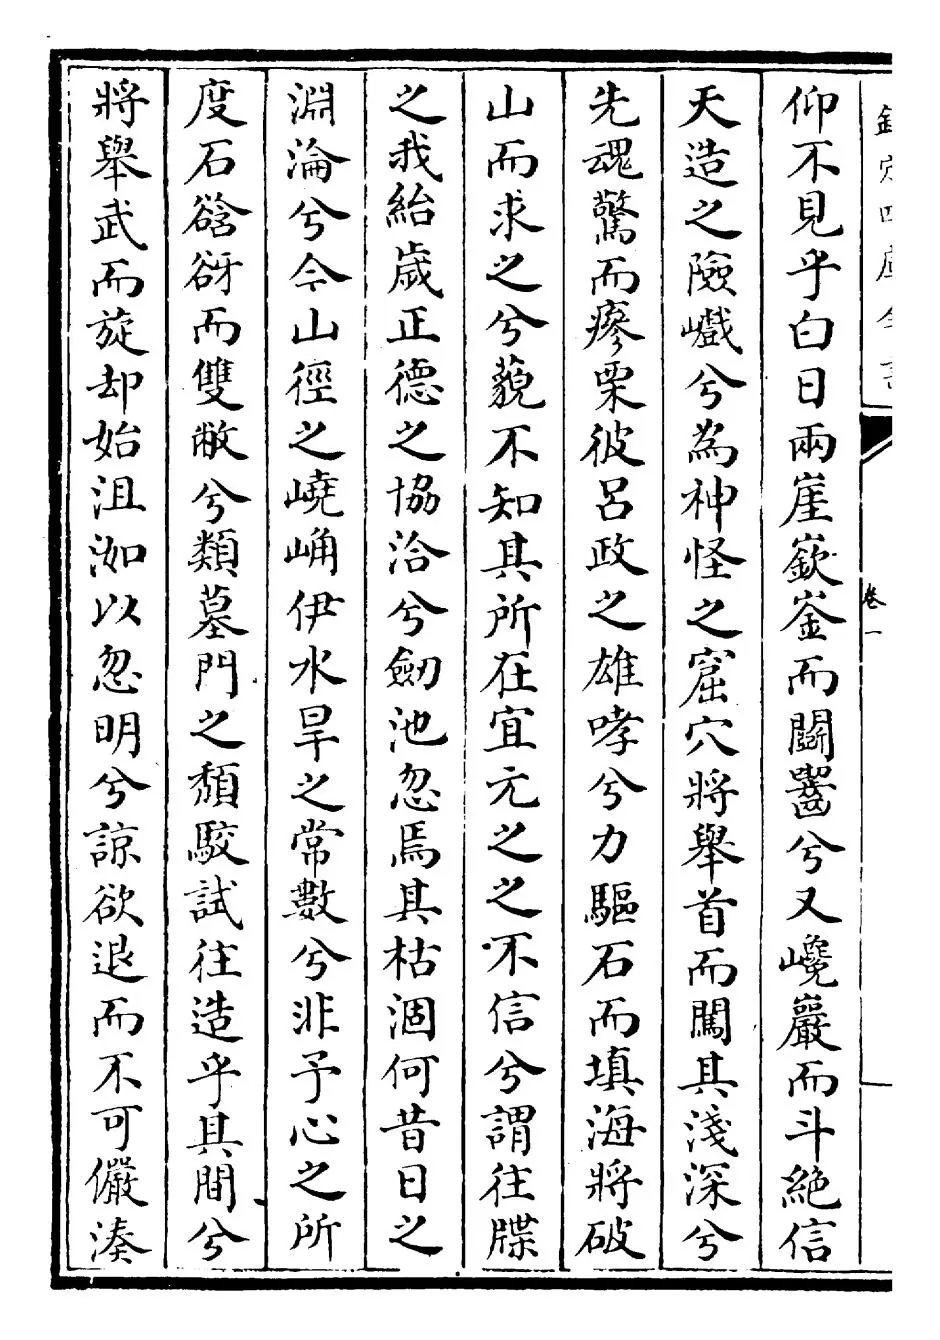 欽定四庫全書
卷一
仰不見乎白日兩崖嶔崟而鬭齧兮又巉巖而斗絶信
天造之險巇兮為神怪之窟穴將舉首而闖其淺深兮
先魂驚而瘮栗彼呂政之雄哮兮力驅石而填海將破
山而求之兮藐不知其所在宜元之之不信兮謂往牒
之我紿歳正德之協洽兮劒池忽焉其枯涸何昔日之
淵淪兮今山徑之嶢崅伊水旱之常數兮非予心之所
度石谽谺而雙敝兮類墓門之頽駮試往造乎其間兮
將舉武而旋却始沮洳以忽明兮諒欲退而不可儼湊